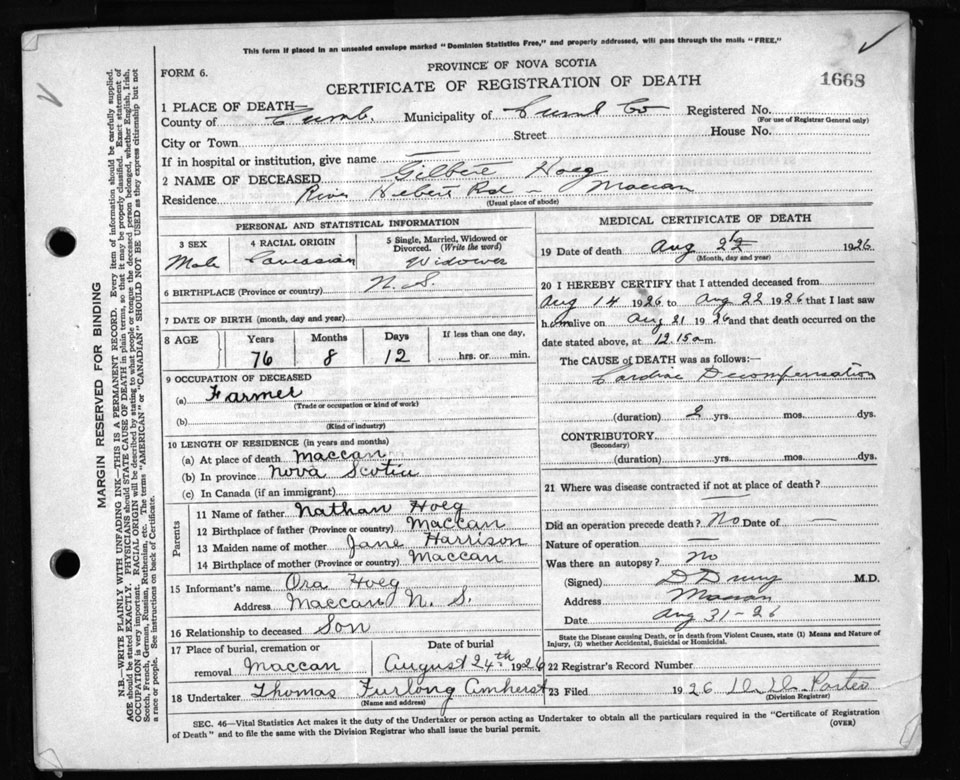 This form if placed in an unsealed envelope marked "Dominion Statistics Free," and properly addressed, will pass through the mails "FREE."
PROVINCE OF NOVA SCOTIA
FORM 6.
CERTIFICATE OF REGISTRATION OF DEATH
1668
1 PLACE OF DEATH—
County of Cumb. Municipality of Cumb Co Registered No.
(For use of Registrar General only)
City or Town Street House No.
If in hospital or institution, give name
2 NAME OF DECEASED Gilbert Hoeg
Residence River Hebert Rd - Maccan
(Usual place of abode)
PERSONAL AND STATISTICAL INFORMATION
3 SEX
Male
4 RACIAL ORIGIN
5 Single, Married, Widowed or Divorced. (Write the word)
Widower
6 BIRTHPLACE (Province or country) N. S.
7 DATE OF BIRTH (month, day and year)
8 AGE Years Months Days If less than one day,
76 8 12 hrs. or min.
9 OCCUPATION OF DECEASED
(a) Farmer
(Trade or occupation or kind of work)
(b)
(Kind of industry)
10 LENGTH OF RESIDENCE (in years and months)
(a) At place of death Maccan
(b) In province Nova Scotia
(c) In Canada (if an immigrant)
Parents
11 Name of father Nathan Hoeg
12 Birthplace of father (Province or country) Maccan
13 Maiden name of mother Jane Harrison
14 Birthplace of mother (Province or country) Maccan
15 Informant's name Ora Hoeg
Address Maccan N. S.
16 Relationship to deceased Son
17 Place of burial, cremation or removal Maccan
Date of burial
August 24th 1926
18 Undertaker Thomas Furlong Amherst
(Name and address)
MEDICAL CERTIFICATE OF DEATH
19 Date of death Aug 22 1926
(Month, day and year)
20 I HEREBY CERTIFY that I attended deceased from
Aug 14 1926 to Aug 22 1926 that I last saw
him alive on Aug 21 1926 and that death occurred on the
date stated above, at 12.15 a.m.
The CAUSE OF DEATH was as follows:—
Cardiac Decompensation
(duration) 2 yrs. mos. dys.
CONTRIBUTORY
(Secondary)
(duration) yrs. mos. dys.
21 Where was disease contracted if not at place of death?
—
Did an operation precede death? No Date of —
Nature of operation —
Was there an autopsy? No
(Signed) M.D.
Address Maccan
Date Aug 31-26
State the Disease causing Death, or in death from Violent Causes, state (1) Means and Nature of
Injury, (2) whether Accidental, Suicidal or Homicidal.
22 Registrar's Record Number
23 Filed 1926
(Division Registrar)
SEC. 46—Vital Statistics Act makes it the duty of the Undertaker or person acting as Undertaker to obtain all the particulars required in the "Certificate of Registration
of Death" and to file the same with the Division Registrar who shall issue the burial permit. (OVER)
MARGIN RESERVED FOR BINDING
N.B.—WRITE PLAINLY WITH UNFADING INK—THIS IS A PERMANENT RECORD. Every item of information should be carefully supplied.
AGE should be stated EXACTLY. PHYSICIANS should STATE CAUSE OF DEATH in plain terms, so that it may be properly classified. Exact statement of
OCCUPATION is very important. RACIAL ORIGIN will be described by stating to what people or tongue the deceased person belonged, whether English, Irish,
Scotch, French, German, Russian, Ruthenian, etc. The terms "AMERICAN" or "CANADIAN" SHOULD NOT BE USED as they express citizenship but not
a race or people. See instructions on back of Certificate.